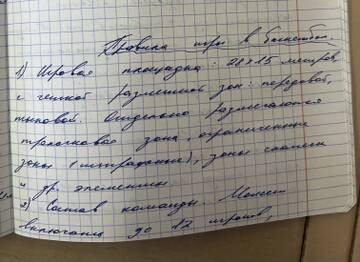 Правила игры в баскетбол.
1) Игровая площадка: 28×15 метров,
с четкой разметкой зон: передовой,
тыловой. Отдельно размечаются
трехочковая зона, ограниченные
зоны (штрафные), зоны скамеек
и др. элементы
2) Состав команды. Может
включать до 12 игроков,